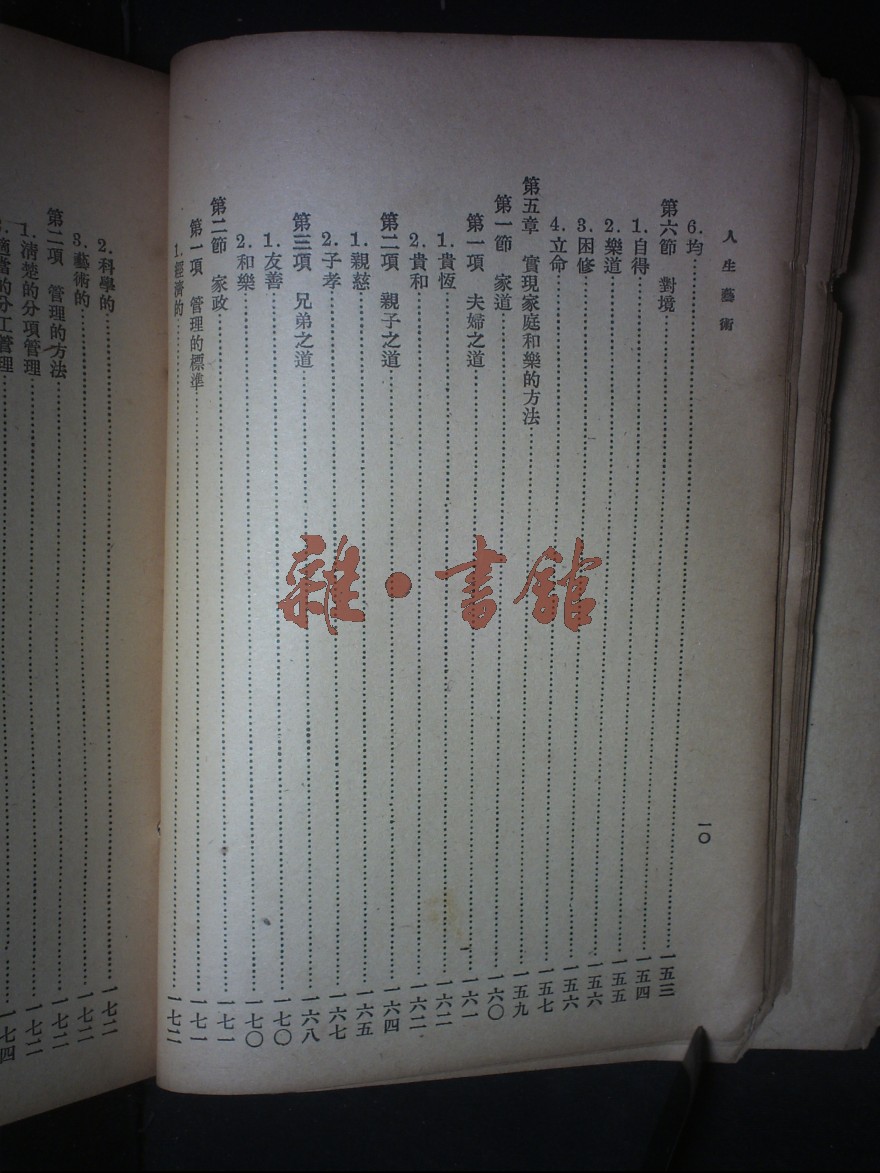 人生藝術
一〇
6.均……一五三
第六節 對境……一五四
1.自得……一五五
2.樂道……一五六
3.困修……一五六
4.立命……一五七
第五章 實現家庭和樂的方法……一五九
第一節 家道……一六〇
第一項 夫婦之道……一六一
1.貴恆……一六二
2.貴和……一六二
第二項 親子之道……一六四
1.親慈……一六五
2.子孝……一六七
第三項 兄弟之道……一六八
1.友善……一七〇
2.和樂……一七〇
第二節 家政……一七一
第一項 管理的標準……一七一
1.經濟的……一七二
2.科學的……一七二
3.藝術的……一七二
第二項 管理的方法……一七二
1.清楚的分項管理……一七二
適當的分工管理……一七四
雜·書館